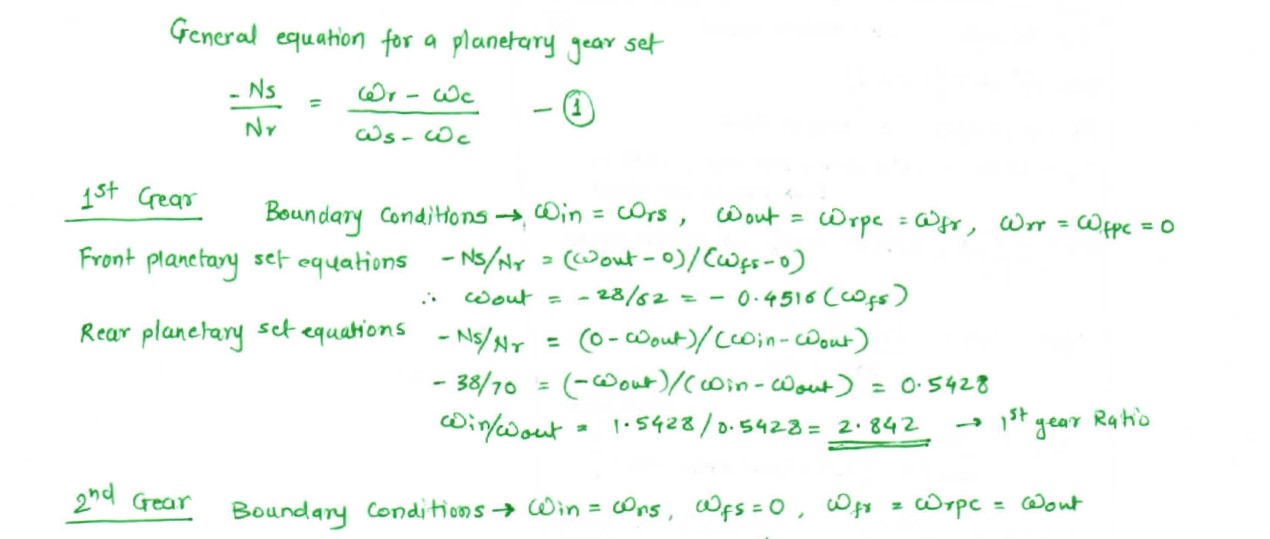 General equation for a planetary gear set
-Ns/Nr = (ωr - ωc)/(ωs - ωc) - ①
1st Gear Boundary Conditions → ωin = ωrs, ωout = ωrpc = ωfr, ωrr = ωfpc = 0
Front planetary set equations -Ns/Nr = (ωout - 0)/(ωfs - 0)
∴ ωout = -28/62 = -0.4516 (ωfs)
Rear planetary set equations -Ns/Nr = (0 - ωout)/(ωin - ωout)
-38/70 = (-ωout)/(ωin - ωout) = 0.5428
ωin/ωout = 1.5428/0.5428 = 2.842 → 1st gear Ratio
2nd Gear Boundary Conditions → ωin = ωrs, ωfs = 0, ωfr = ωrpc = ωout